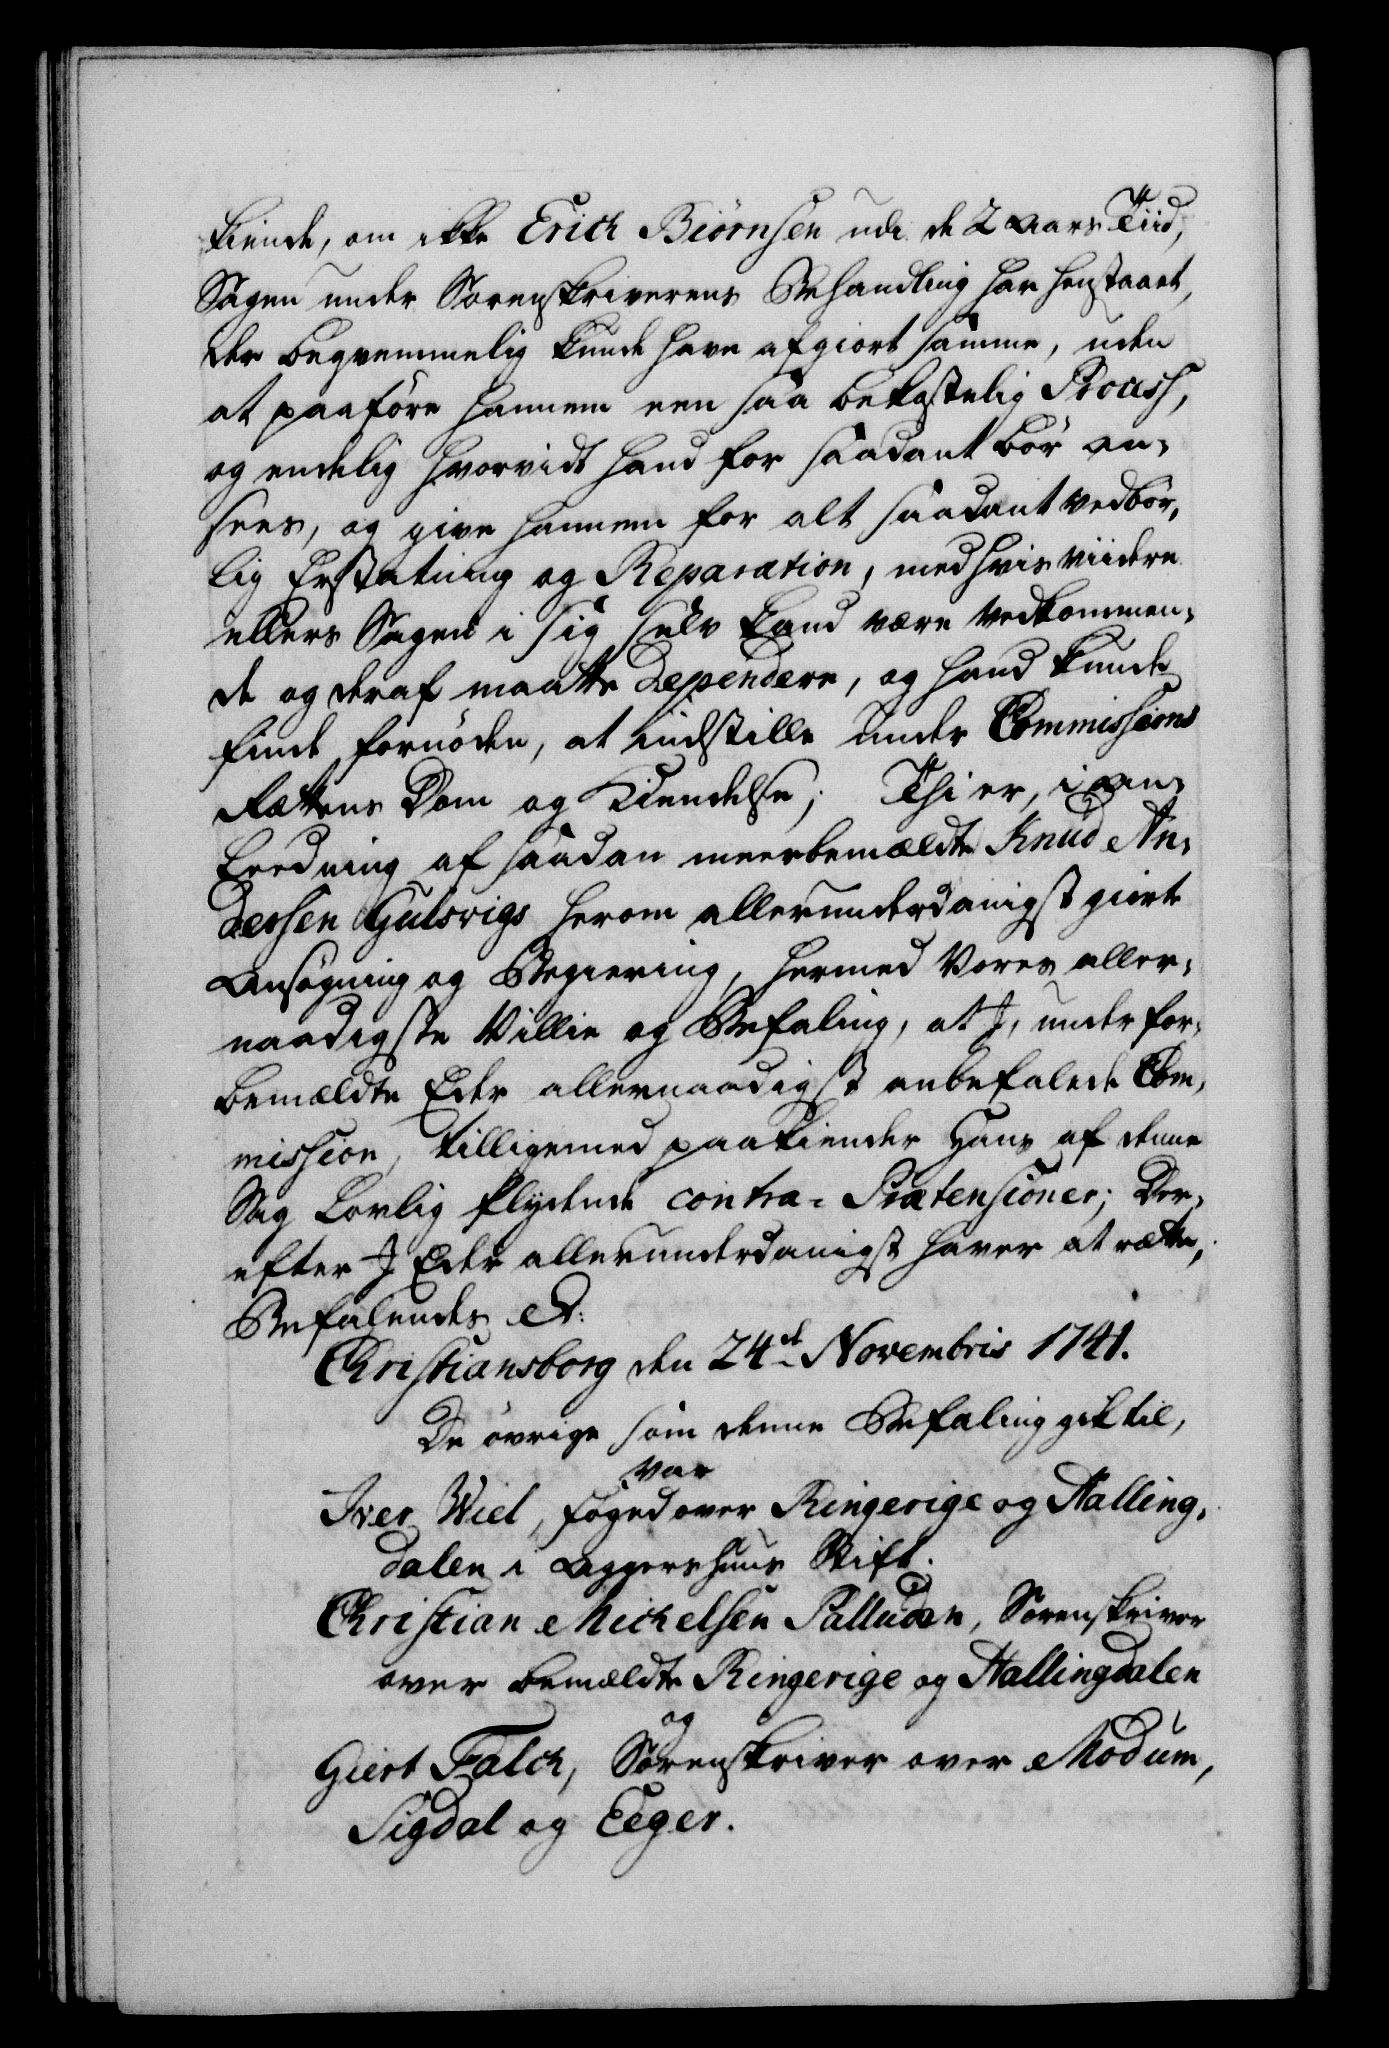 kiende, om ikke Erich Biørnsen udi de 2 Aars Tiid,
Sagen under Sorenskriverens Behandling har henstaaet,
der beqvemmelig kunde have afgiort samme, uden
at paaføre hannem een saa bekostelig Process,
og endelig hvorvidt hand for saadant bør an-
sees, og give hannem for alt saadant vedbør-
lig Erstatning og Reparation, med hvis viidere
ellers Sagen i sig selv kand være vedkommen-
de og deraf maatte dependere, og hand kunde
finde fornøden, at indstille under Commissions
Rættens Dom og Kiendelse; Thi er, i an-
ledning af saadan meerbemældte Knud An-
dersen Gulsvigs herom allerunderdanigst giorte
Ansøgning og Begiering, hermed Vores aller-
naadigste Villie og Befaling, at I, under for-
bemældte Eder allernaadigst anbefalede Com-
mission, tilligemed paakiender Hans af denne
Sag lovlig flydende contra-Prætensioner; Der-
efter I Eder allerunderdanigst haver at rætte,
Befalendes etc:
Christiansborg den 24de Novembris 1741.
De øvrige som denne Befaling gik til,
var
Iver Wiel, foged over Ringerige og Halling-
dalen i Aggershuus Stift.
Christian Michelsen Palludan, Sorenskriver
over bemældte Ringerige og Hallingdalen
og
Giert Falch, Sorenskriver over Modum,
Sigdal og Eeger.